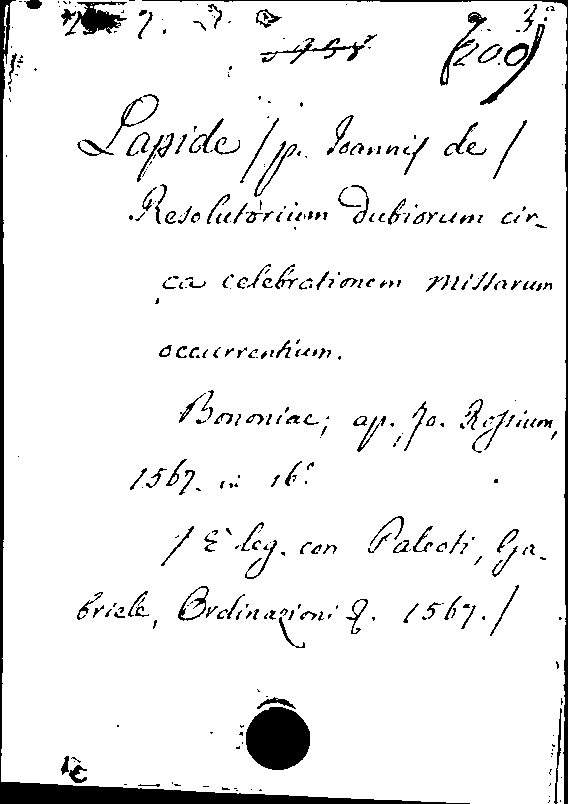 7. 3.
(200)
Lapide / p. Joannis de /
Resolutorium dubiorum cir-
ca celebrationem missarum
occurrentium.
Bononiae; ap. Jo. Rossium,
1567. in 16º
/ È leg. con Paleoti, Ga-
briele, Ordinazioni &. 1567. /